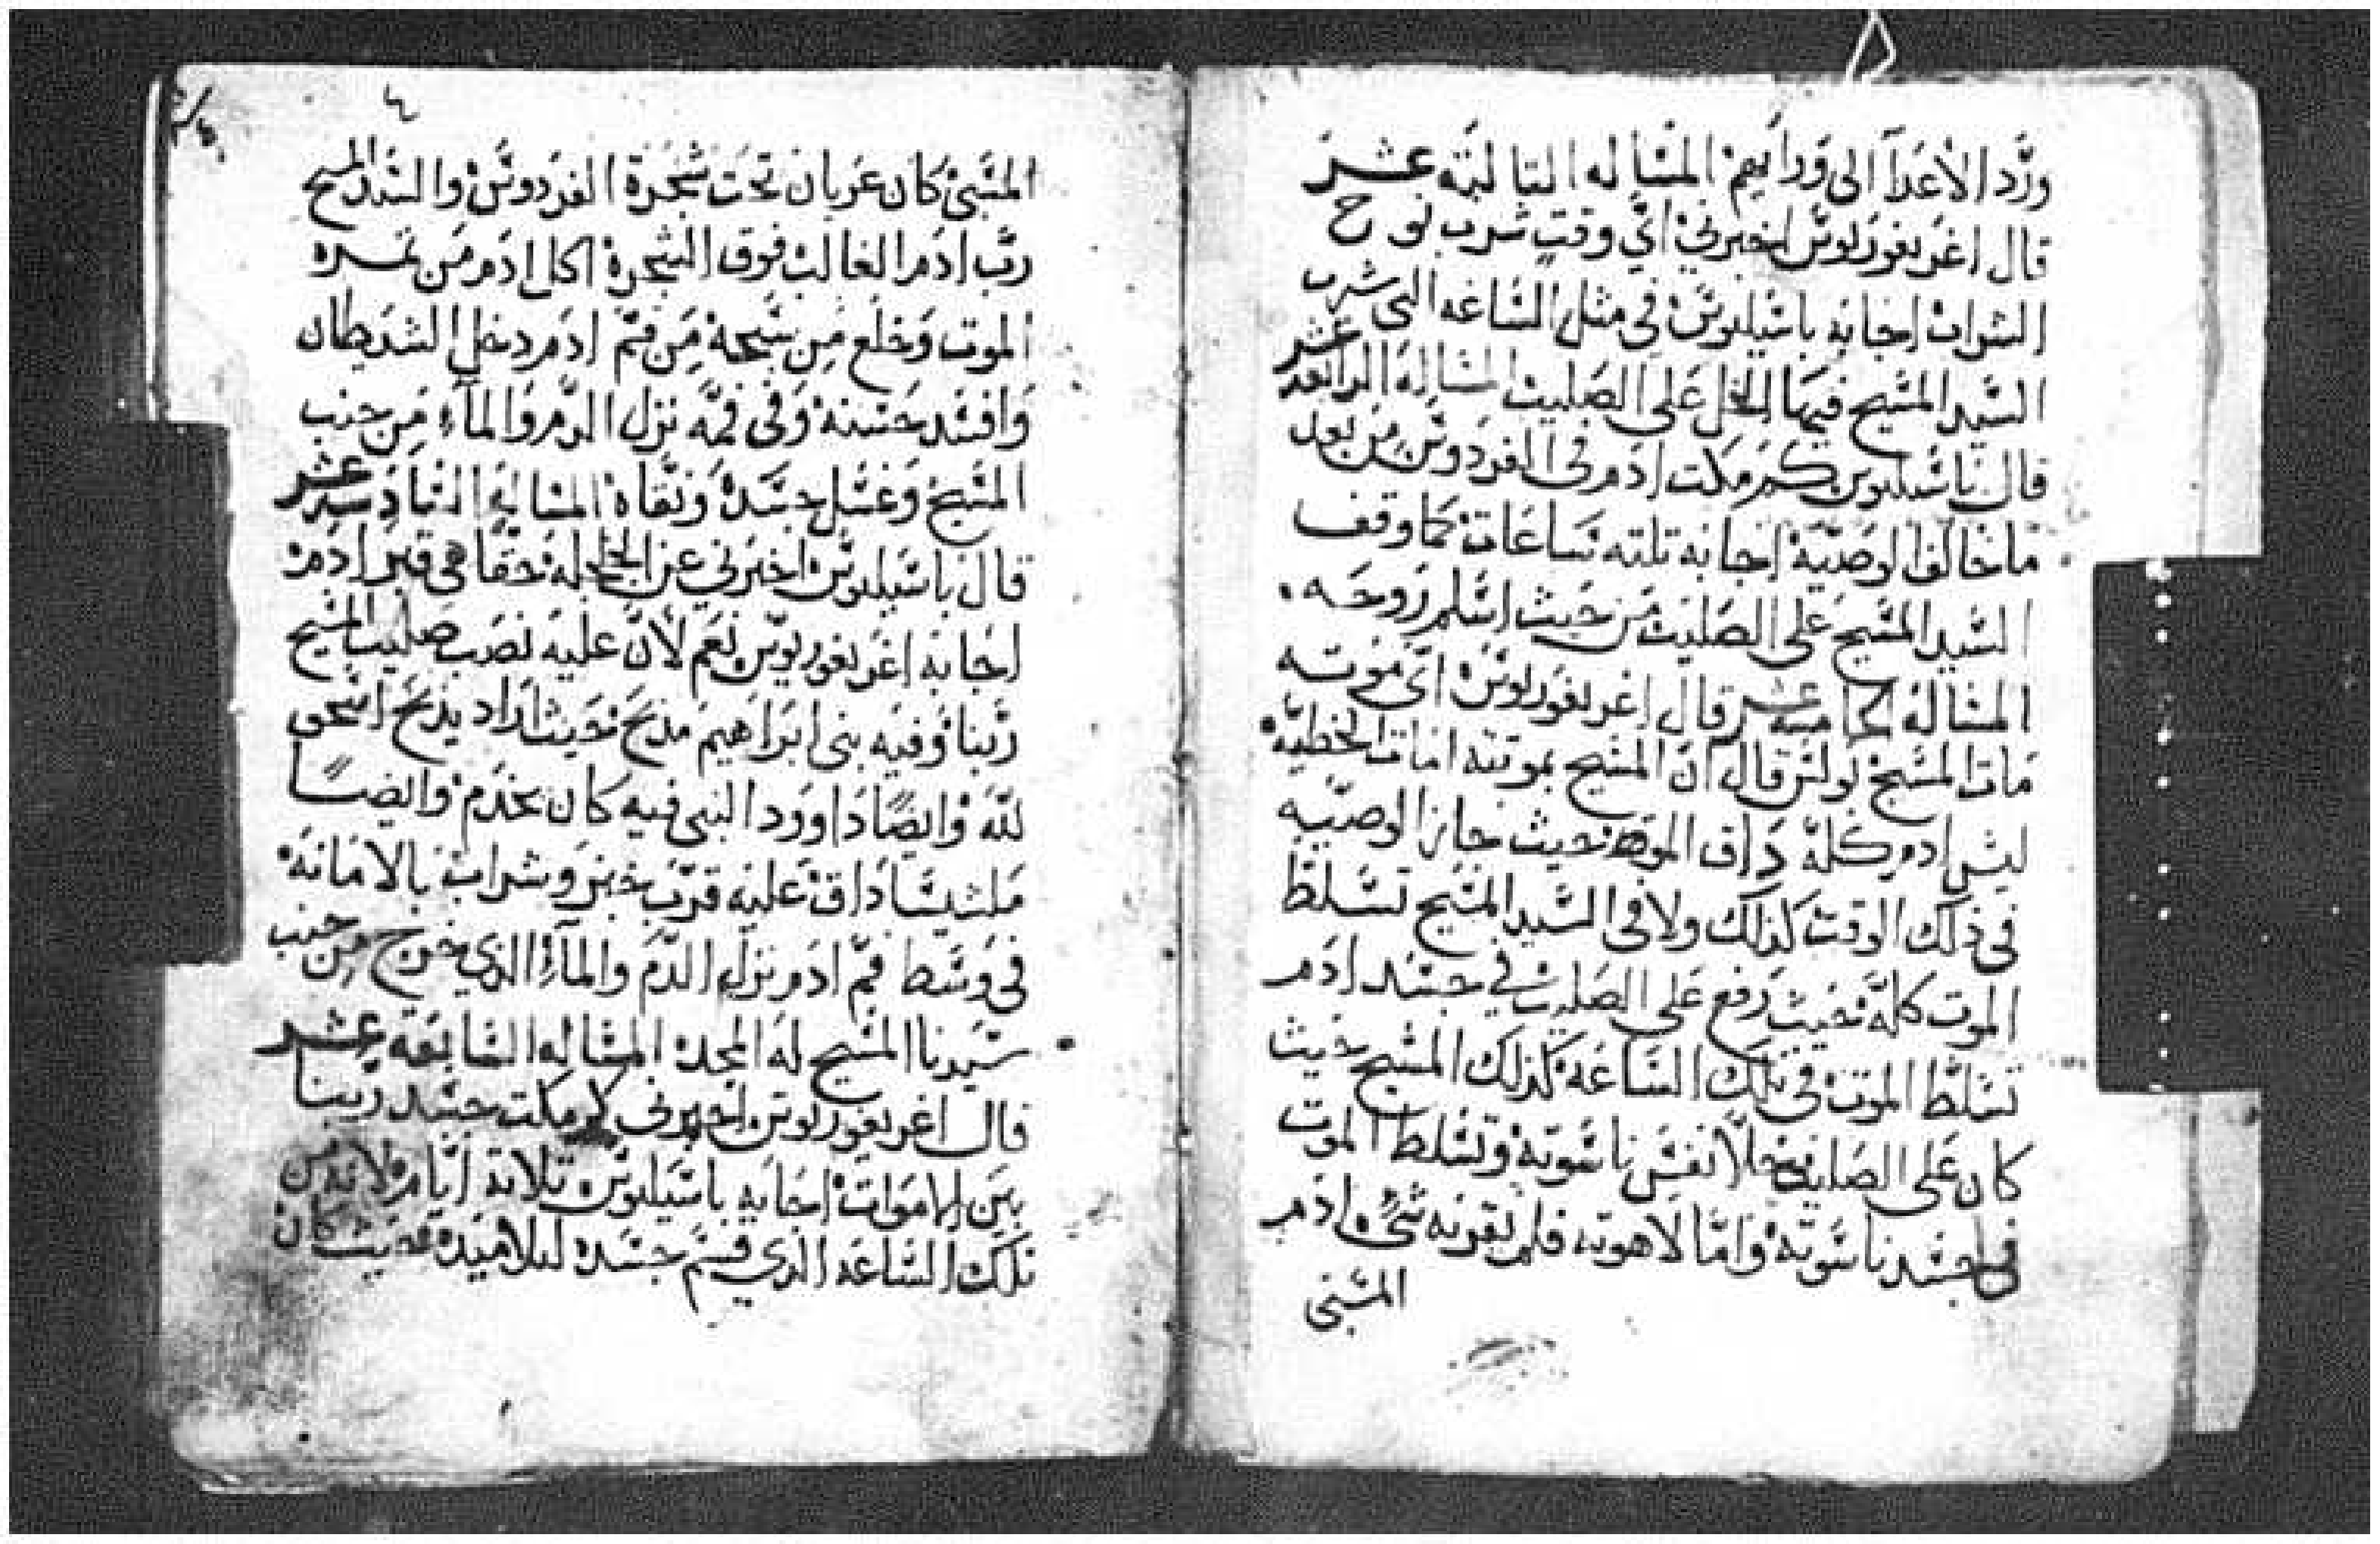 ورَّد الأعدَآ الى وَرايهم المسَأله التالته عشر
قال اغريغوريوس اخبرني ايّ وقتٍ شرب نوح
الشراب اجابه باسَيليوسَ في مثل السَاعه التي شرب
السَيد المسَيح فيها الخل عَلى الصَليب المسَاله الرابعه عشر
قال باسَيليوس كم مكت ادم في الفردوسَ من بعد
ما خالف الوصَيه اجابه تلته سَاعَات كما وقف
السَيد المسَيح عَلى الصَليب من حَيث اسَلم رُوحَه
المسَاله الخامسه عشر قال اغريغوريوسَ ايّ موته
مات المسَيح بولسَ قال انّ المسَيح بموتته امات الخطيّه
ليسَ ادم كلهّ داق الموت حيث جاز الوصيّه
في ذلك الوقت كذلك ولا في السَيد المسَيح تسَلطّ
الموت كلهّ حَيث رفع عَلى الصَليب في جسَد ادَم
تسَلطّ الموت في تلك السَاعَه كذلك المسَيح حَيث
كان عَلى الصَليب خلاّ نفسَ ناسَوته وتسَلط الموت
في جسَد ناسَوته وَامّا لاهوته فلم يقربه شيٌ ادَم
المسَبي
٤
المسَبي كان عَريان تحَت شجَرة الفرَدوسَ والسَيد المسيح
ربّ ادَم الغالب فوق الشجرة اكل ادَم مَن تمره
الموت وَخلع من سَبحه مَن فمّ ادَم دخل الشيطان
وَافسَد حَسَنه وَفي فمّه نزل الدّم وَالمآء من جنب
المسَيح وَغسَل جسَدهُ وَنقّاه المسَاله السَادسه عشر
قال باسَيليوسَ اخبَرني عن الجلجله حَقّا هي قبر ادَم
اجَابه اغَريغوريوسَ نعَم لأنّ عليه نصَب صَليب المسَيح
ربّنا وَفيه بنى ابرَاهيم مذبحَ حَيث ارَاد يذبحَ اسَحَق
للّه وَايضًا دَاوود النبي فيه كان يخدَم وَايضًا
مَلشيسَادَاق عَليه قرّب خبز وَشراب بالامَانه
في وَسَط فمّ ادَم نزل الدَّم وَالمآء الذي خرج من جنب
سَيدنا المسَيح لهَ المجد المسَاله السَابعَه عشر
قال اغريغوريوسَ اخبرني كم مكت جسَد ربّنا
بين الامَوات اجَابه باسَيليوسَ تلاتة ايّام لانه من
تلك السَاعَه الذي قسَم جسَده لتلاميَده حَيث كان